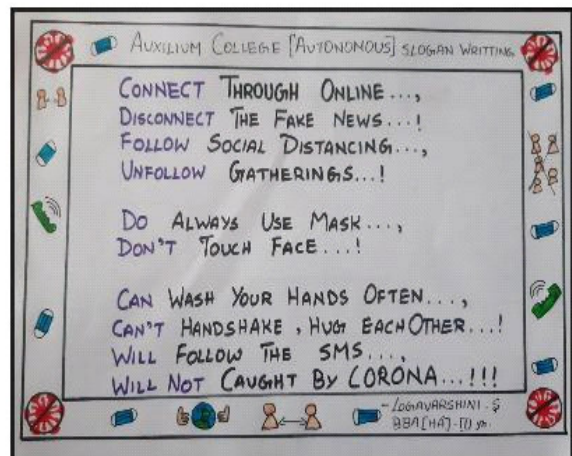 AUXILIUM COLLEGE [AUTONONOUS] SLOGAN WRITTING
CONNECT THROUGH ONLINE...,
DISCONNECT THE FAKE NEWS...!
FOLLOW SOCIAL DISTANCING...,
UNFOLLOW GATHERINGS...!
DO ALWAYS USE MASK...,
DON'T TOUCH FACE...!
CAN WASH YOUR HANDS OFTEN...,
CAN'T HANDSHAKE, HUG EACH OTHER...!
WILL FOLLOW THE SMS...,
WILL NOT CAUGHT BY CORONA...!!!
- LOGAVARSHINI. S
BBA [HA]